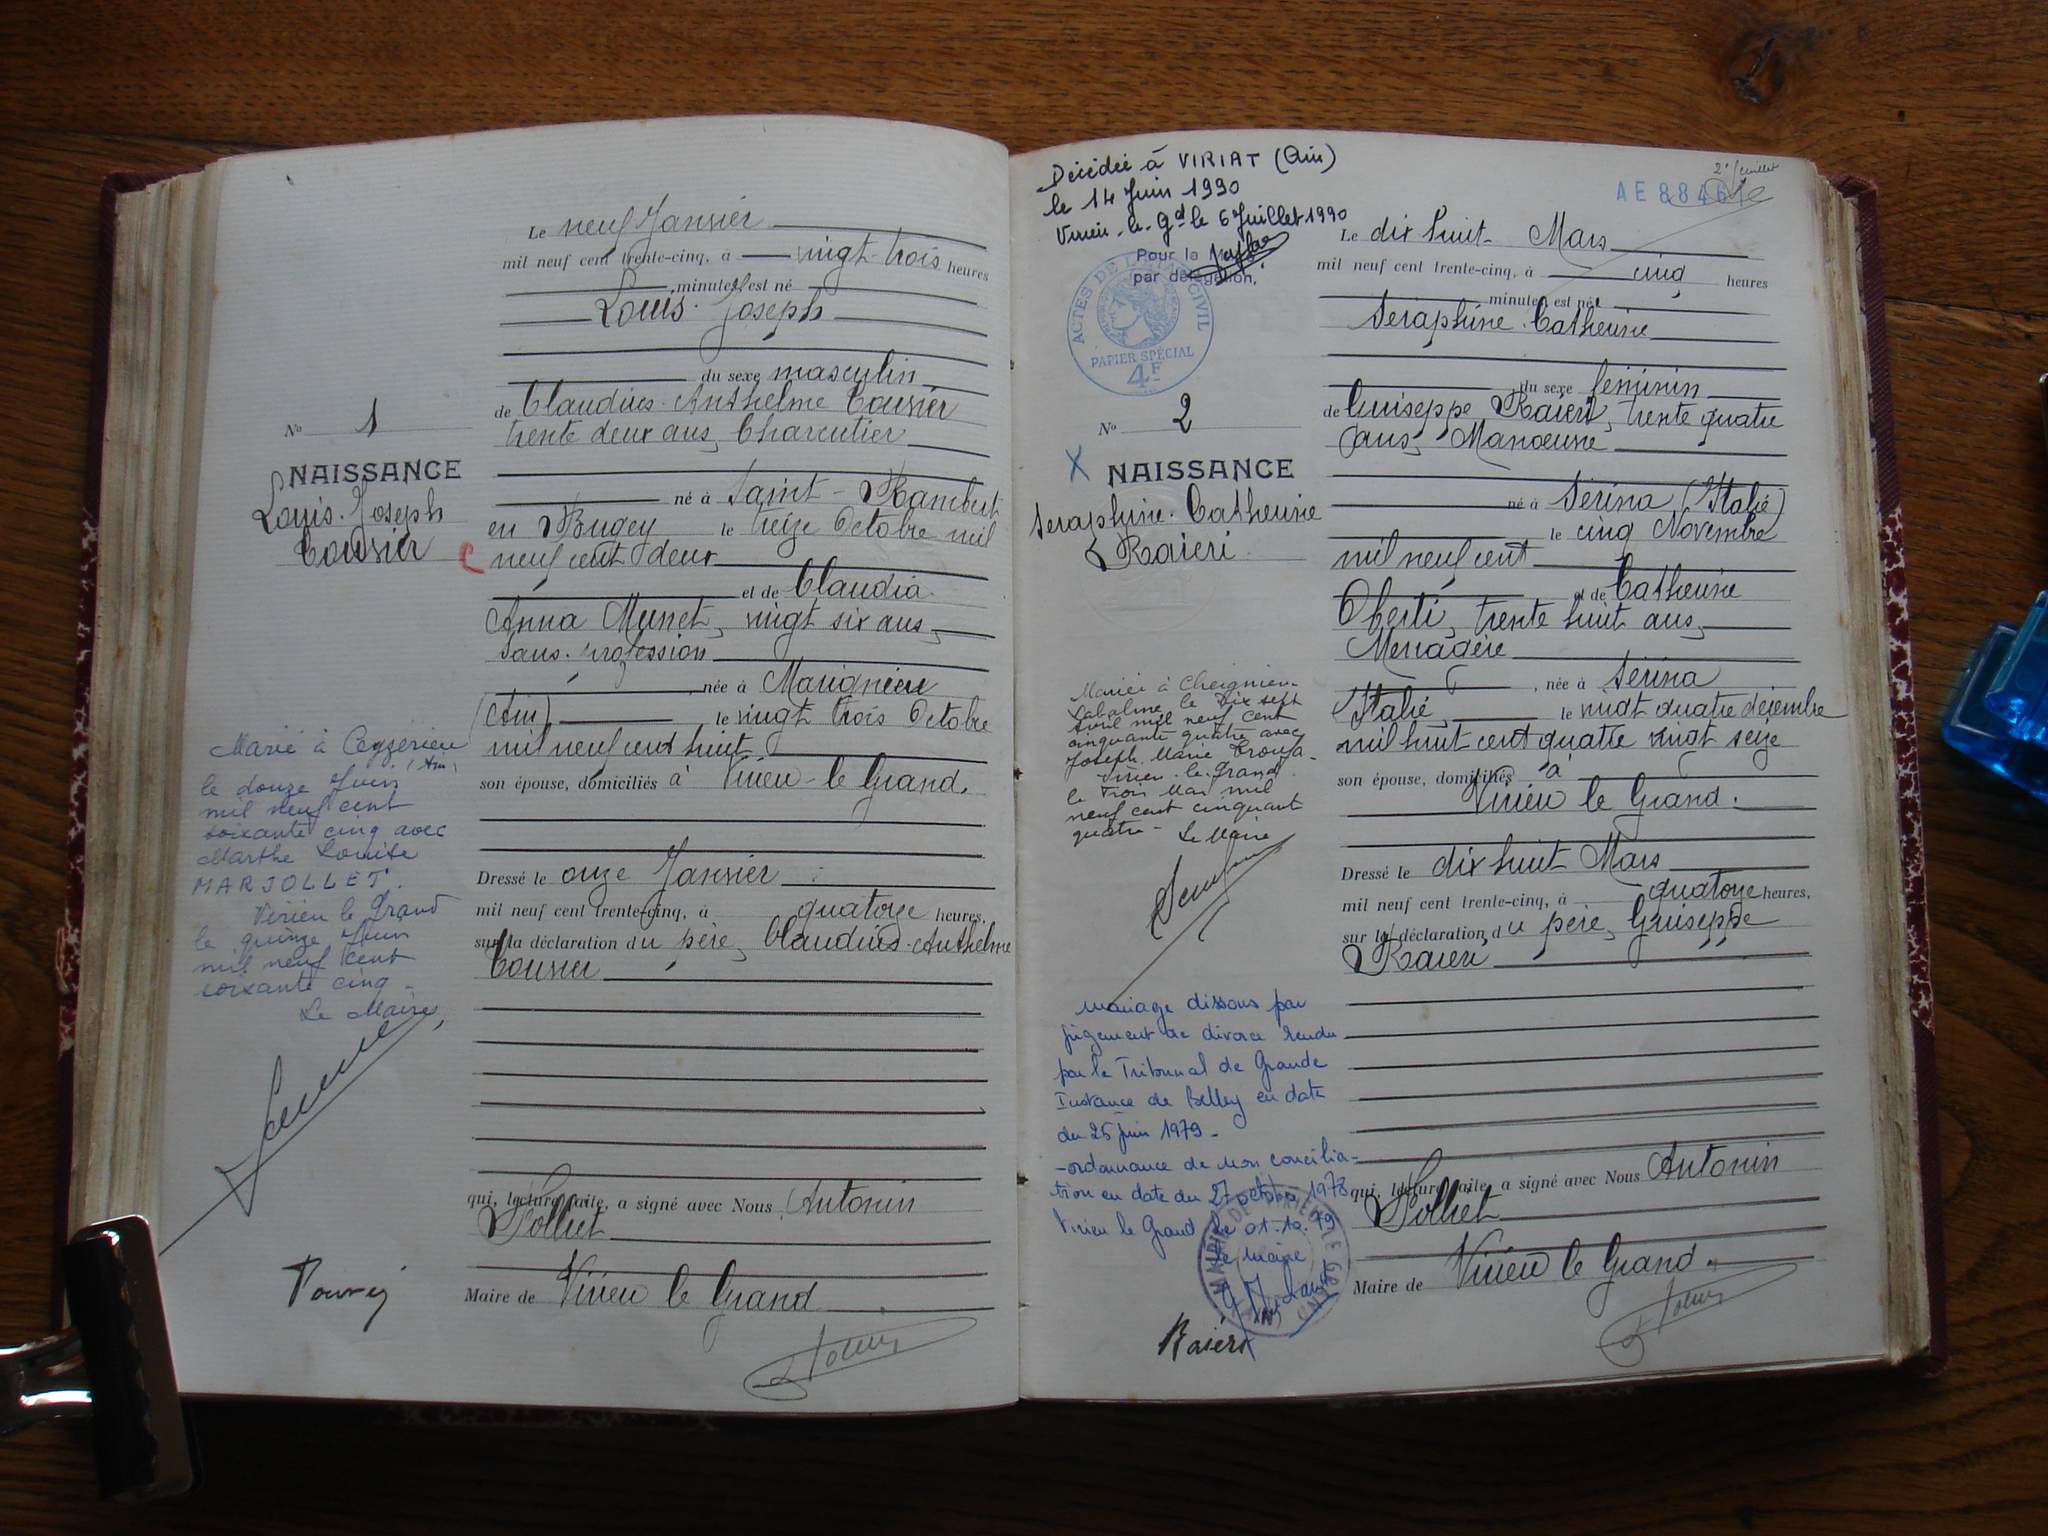 Le neuf Janvier
mil neuf cent trente-cinq, à vingt-trois heures
minutes est né
Louis Joseph
du sexe masculin
de Claudius Anthelme
trente deux ans, Charcutier
né à Saint-Rambert
en Bugey le treize Octobre mil
neuf cent deux
et de Claudia
Anna vingt six ans,
sans profession
née à Marignieu
(Ain) le vingt trois Octobre
mil neuf cent huit
son épouse, domiciliés à Virieu-le Grand.
Dressé le onze Janvier
mil neuf cent trente-cinq, à quatorze heures,
sur la déclaration du père, Claudius-Anthelme
qui, lecture faite, a signé avec Nous Antonin
Maire de Virieu le Grand
No 1
NAISSANCE
Louis-Joseph
Marié à Ceyzérieu
(Ain)
le douze Juin
mil neuf cent
soixante cinq avec
Marthe Louise
MARJOLLET.
Virieu le Grand
le quinze Juin
mil neuf cent
soixante cinq -
Le Maire,
Décédée à VIRIAT (Ain)
le 14 Juin 1990
Virieu-le-Gd le 6 Juillet 1990
Pour le
par délégation,
ACTES DE L'ETAT CIVIL
PAPIER SPÉCIAL
4F
2e feuillet
AE 8846
No 2
X NAISSANCE
Seraphine-Catherine
Raieri
Mariée à Cheignieu-
Labalme le dix sept
Avril mil neuf cent
cinquante quatre avec
Joseph Marie
Virieu-le-Grand
le trois Mai mil
neuf cent cinquant
quatre - Le Maire
mariage dissous par
jugement de divorce rendu
par le Tribunal de Grande
Instance de Belley en date
du 25 juin 1979 -
-ordonnance de non concilia-
tion en date du 27 octobre 1978
Virieu le Grand le 01.10.79
Le Maire
MAIRIE DE VIRIEU LE GRAND
Raieri
Le dix huit Mars
mil neuf cent trente-cinq, à cinq heures
minutes est né
Seraphine-Catherine
du sexe féminin
de Guiseppe Raieri, trente quatre
ans, Manoeuvre
né à Sérina (Italie)
le cinq Novembre
mil neuf cent
et de Catherine
Oberti, trente huit ans,
Menagère
née à Sérina
Italie, le vingt quatre décembre
mil huit cent quatre vingt seize
son épouse, domiciliés à
Virieu le Grand.
Dressé le dix huit Mars
mil neuf cent trente-cinq, à quatorze heures,
sur la déclaration du père, Guiseppe
Raieri
qui, lecture faite, a signé avec Nous Antonin
Maire de Virieu le Grand